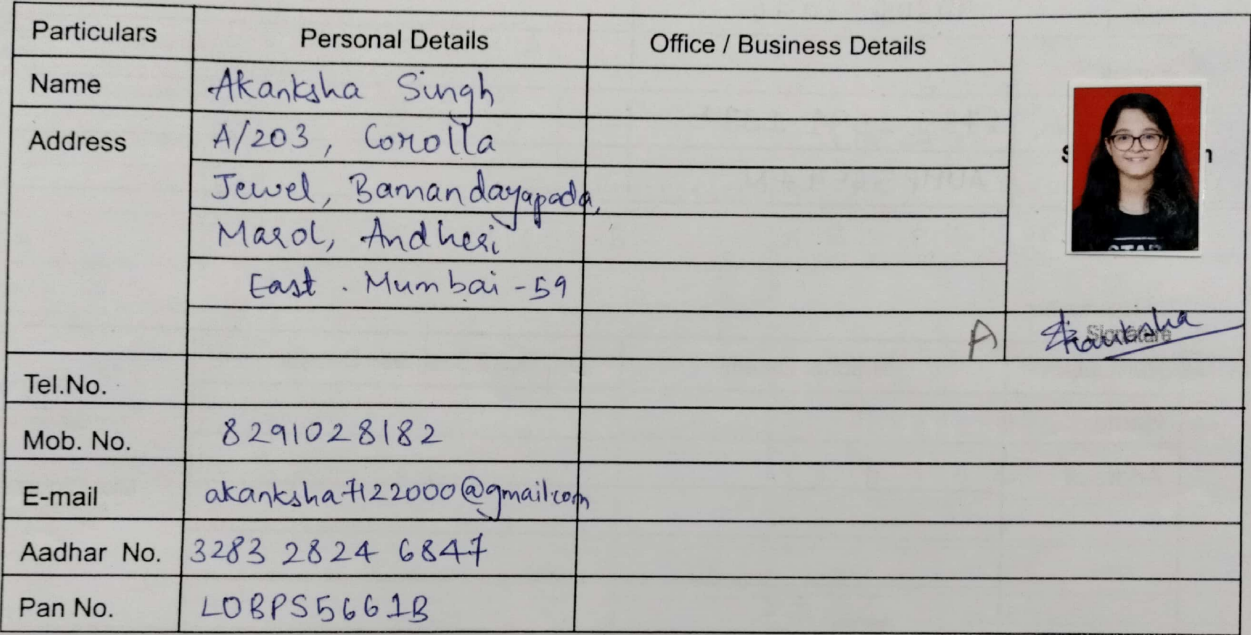 Particulars Personal Details Office / Business Details
Name Akanksha Singh
Address A/203, Corolla
Jewel, Bamandayapada,
Marol, Andheri
East. Mumbai - 59
A Akanksha
Signature
Tel.No.
Mob. No. 8291028182
E-mail akanksha7122000@gmail.com
Aadhar No. 3283 2824 6847
Pan No. LOBPS5661B